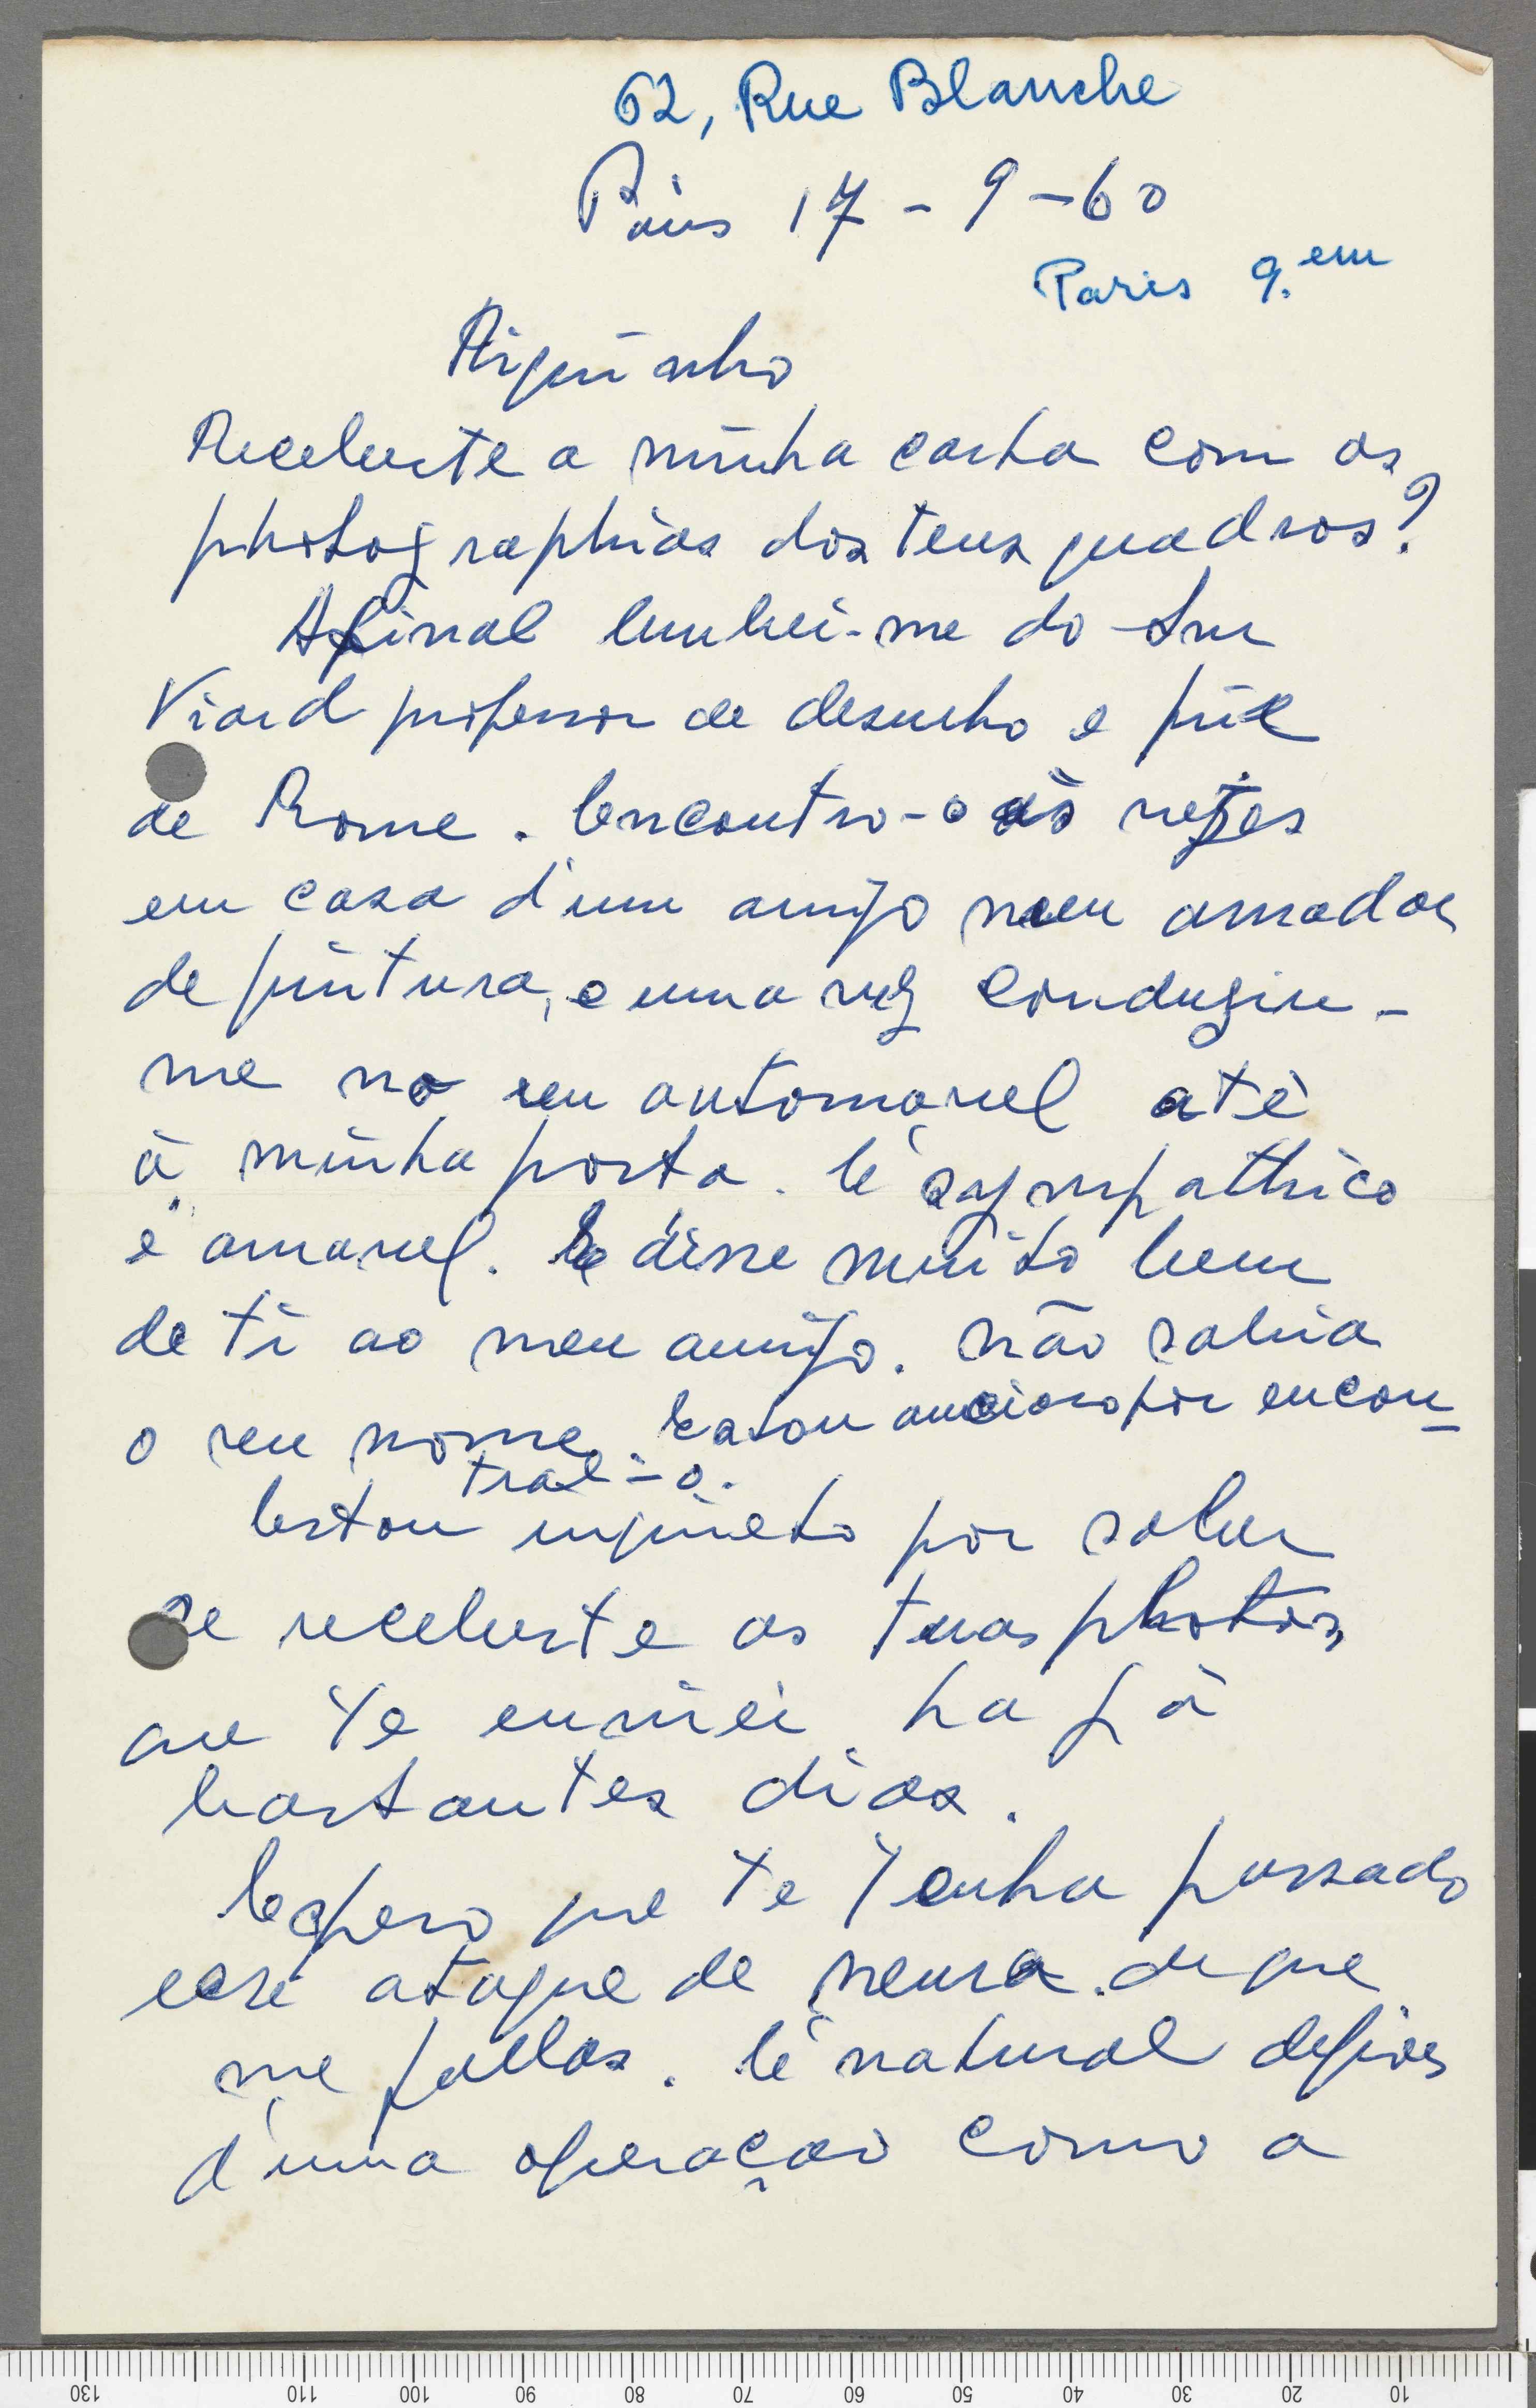 62, Rue Blanche
Paris 17-9-60
Paris 9.em
Riquinho
Recebeste a minha carta com as
photographias dos teus quadros?
Afinal lembrei-me do Snr
Viard professor de desenho e prix
de Rome. Encontro-o às vezes
em casa d'um amigo meu amador
de pintura, e uma vez conduziu-
me no seu automovel até
à minha porta. É sympathico
e amavel. E disse muito bem
de ti ao meu amigo. Não sabia
o seu nome. Estou ancioso por encon-
tral-o.
Estou inquieto por saber
se recebeste as tuas photos,
que te enviei ha já
bastantes dias.
Espero que te tenha passado
esse ataque de neura de que
me fallas. É natural depois
d'uma operação como a